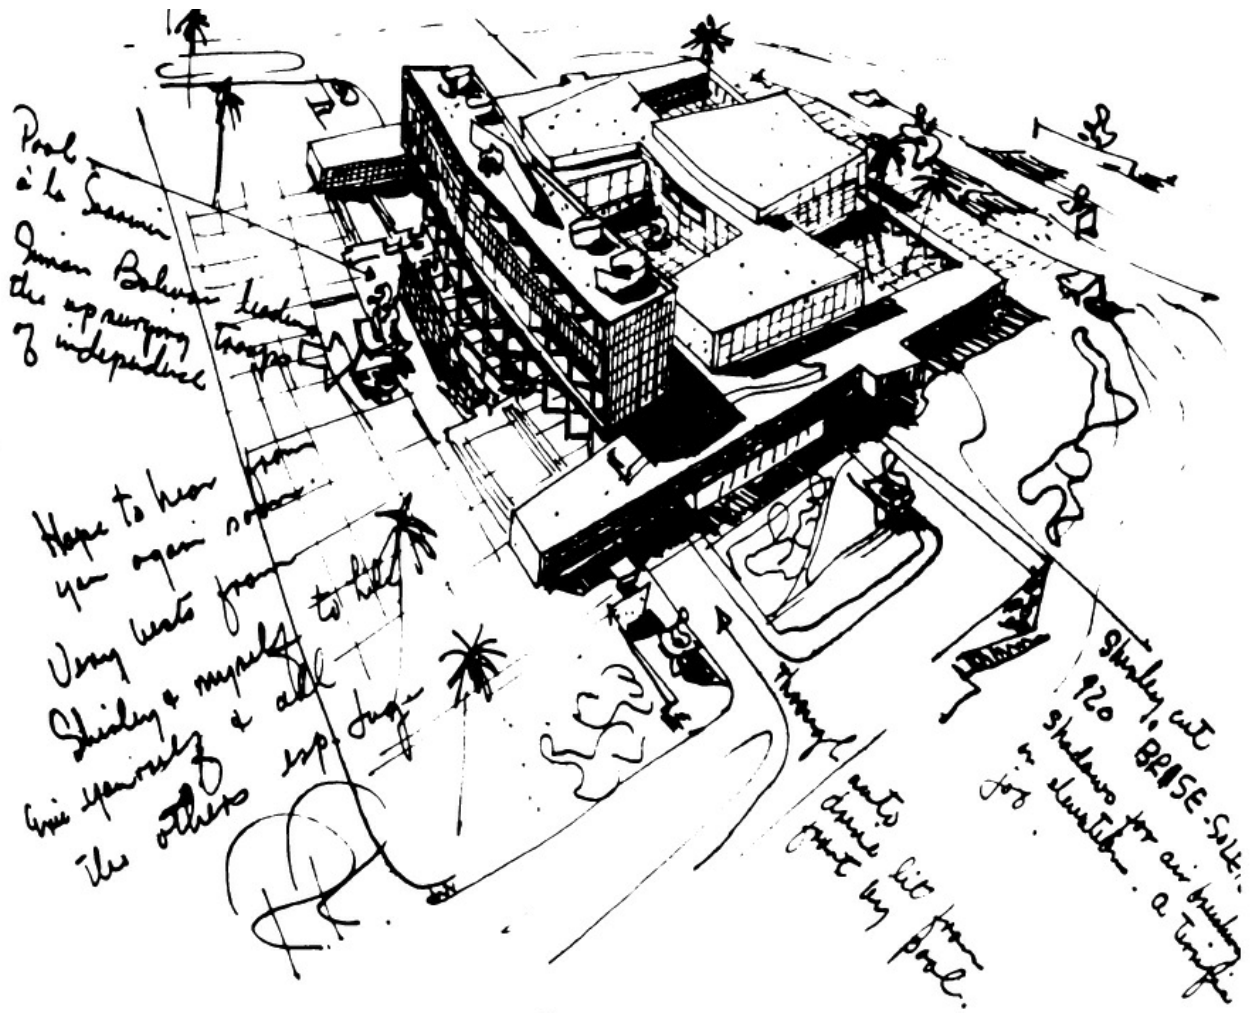 Pool
à la Saarinen
Simon Bolivar leading
the upsurging troops
of independence
Hope to hear from
you again soon.
Very bests from
Shirley & myself to
Give yourself & all
the others esp.
through
auto
drive lit from
front by
pool.
Shirley cut
920 BRISE-SOLEIL
shadows for air brushing
in elevation. a terrific
job.